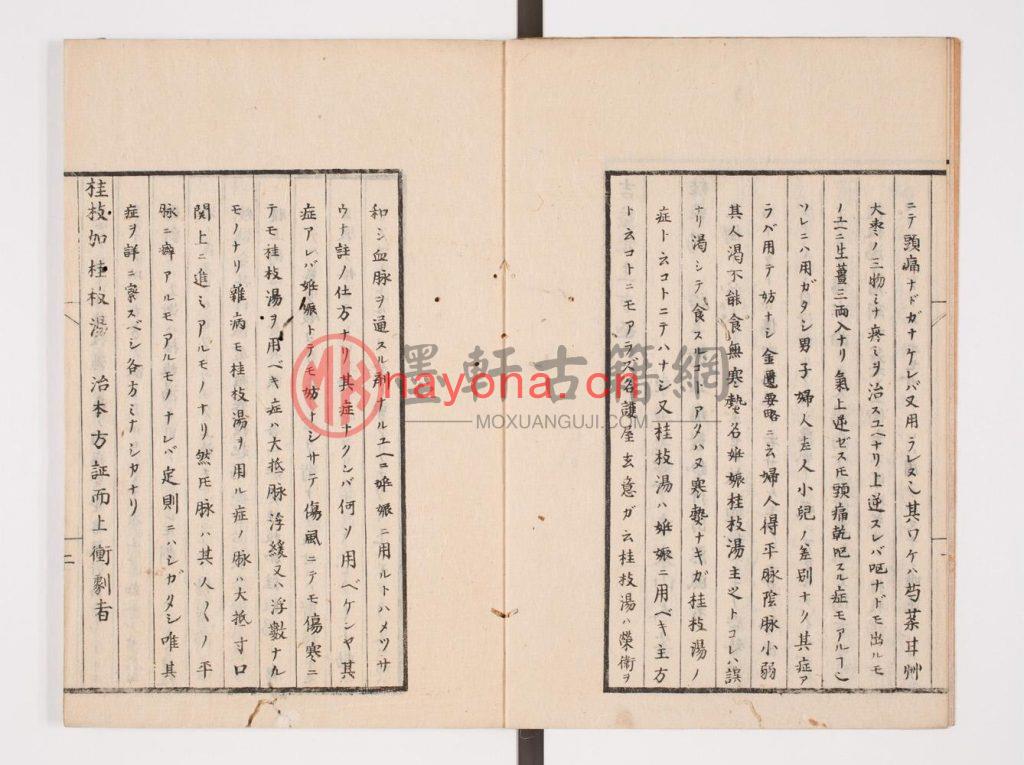 ニテ頭痛ナドガナケレバ又用ラレヌ也其ワケハ芍薬甘艸
大枣ノ三物ミナ疼ミヲ治スユヘナリ上逆スレバ呕ナドモ出ルモ
ノユヘニ生薑三両入ナリ氣上逆ゼズ𪜈頭痛乾呕スル症モアルヿ也
ソレニハ用ガタシ男子婦人老人小兒ノ差別ナク其症ア
ラバ用テ妨ナシ金匱要略ニ云婦人得平脉陰脉小弱
其人渇不能食無寒熱名妊娠桂枝湯主之トコレハ誤
ナリ渇シテ食スルコトアタハヌ寒熱ナキガ桂枝湯ノ
症ト云コトニテハナシ又桂枝湯ハ妊娠ニ用ベキ主方
ト云コトニモアラズ名護屋玄意ガ云桂枝湯ハ榮衛ヲ
和シ血脉ヲ通スル剤ナルユヘニ妊娠ニ用ルトハメツサ
ウナ註ノ仕方ナリ其症ナクンバ何ソ用ベケンヤ其
症アレバ妊娠トテモ妨ナシサテ傷風ニテモ傷寒ニ
テモ桂枝湯ヲ用ベキ症ハ大抵脉浮緩又ハ浮數ナル
モノナリ雜病モ桂枝湯ヲ用ル症ノ脉ハ大抵寸口
関上ニ進ミアルモノナリ然𪜈脉ハ其人〱ノ平
脉ニ癖アルモアルモノナレバ定則ニハシガタシ唯其
症ヲ詳ニ察スベシ各方ミナシカナリ
桂枝加桂枝湯 治本方証而上衝劇者
墨軒古籍網
nayona.cn
MOXUANGUJI.COM